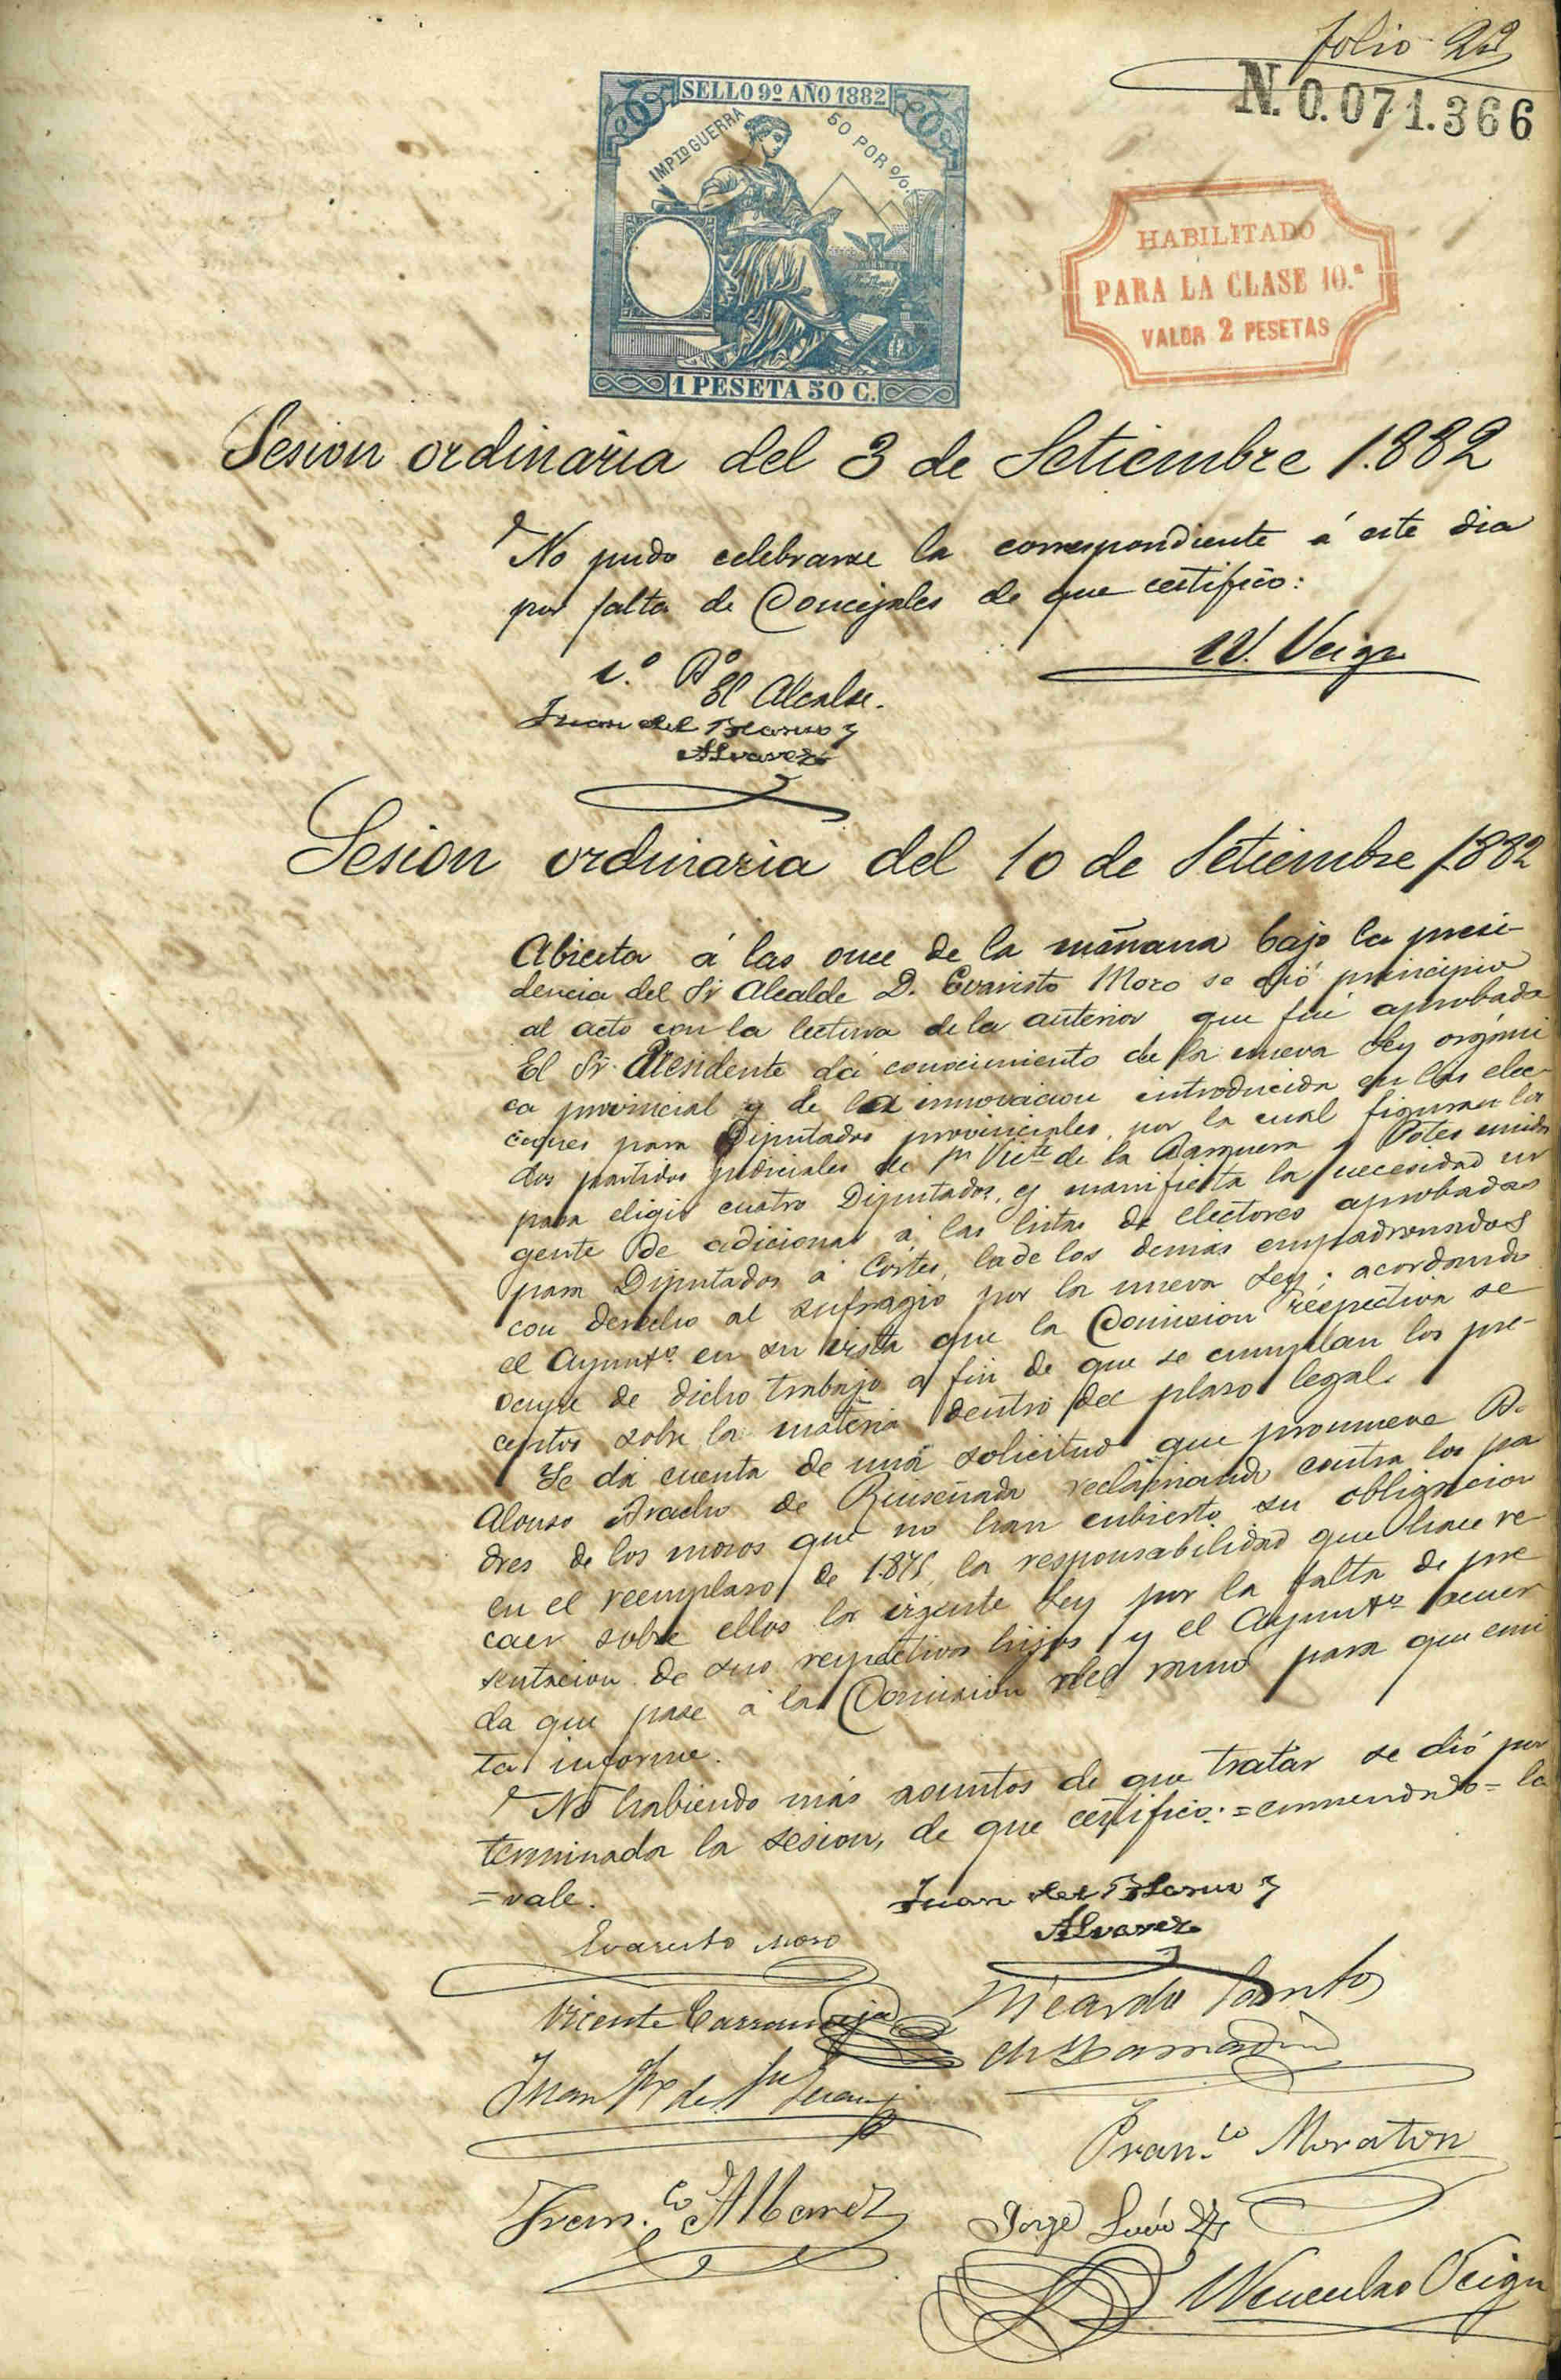 folio 22
N. 0.071.366
SELLO 9º AÑO 1882
IMPTO GUERRA 50 POR %.
1 PESETA 50 C.
HABILITADO
PARA LA CLASE 10.ª
VALOR 2 PESETAS
Sesion ordinaria del 3 de Setiembre 1.882
No pudo celebrarse la correspondiente á este dia
por falta de Concejales de que certifico:
W. Veiga
V.º B.º
El Alcalde.
Juan del Blanco y
Alvarez
Sesion ordinaria del 10 de Setiembre 1882
Abierta á las once de la mañana bajo la presi-
dencia del Sr Alcalde D. Evaristo Moro se dió principio
al acto con la lectura de la anterior que fué aprobada
El Sr. Presidente dá conocimiento de la nueva Ley orgáni
ca provincial y de la innovacion introducida en las elec-
ciones para Diputados provinciales, por la cual figuran los
dos partidos judiciales de Sn Victe de la Barquera y Potes unidos
para eligir cuatro Diputados, y manifiesta la necesidad ur
gente de adicionar á las listas de electores aprobadas
para Diputados á Córtes, la de los demás empadronados
con derecho al sufragio por la nueva Ley; acordando
el Ayuntº en su vista que la Comision respectiva se
ocupe de dicho trabajo á fin de que se cumplan los pre-
ceptos sobre la materia dentro del plaso legal.
Se dá cuenta de una solicitud que promueve D.
Alonso de Ruiseñada reclamando contra los pa
dres de los mosos que no han cubierto su obligacion
en el reemplaso de 1875, la responsabilidad que hace re
caer sobre ellos la vigente Ley por la falta de pre
sentacion de sus respectivos hijos y el Ayuntº acuer
da que pase á la Comision del ramo para que emi
ta informe.
No habiendo más asuntos de que tratar se dió por
terminada la sesion, de que certifico: = enmendado = la
= vale.
Juan del Blanco y
Alvarez
Evaristo Moro
Ricardo Santos
Vicente
Juan de
Fran.co Moraton
Fran.co Alvarez
Jorge
Wenceslao Veiga